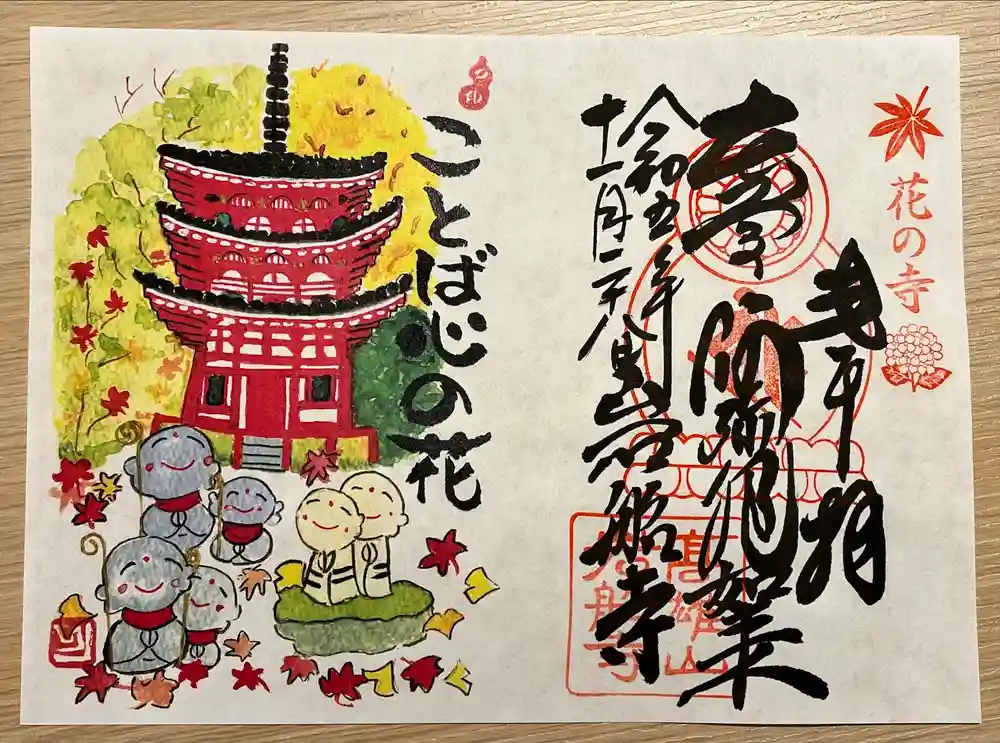 花の寺
奉拝
本尊
阿弥陀如来
令和五年
十一月二十八日
岩船寺
高雄山
岩船寺
ことば心の花